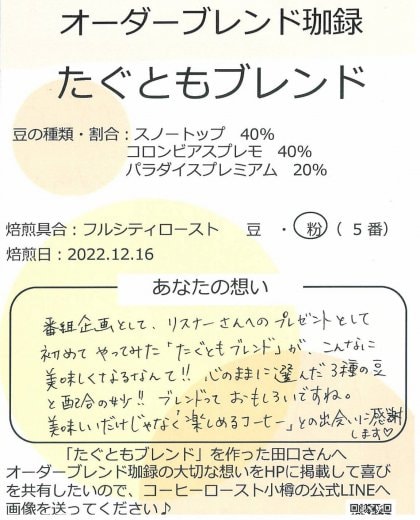 オーダーブレンド珈録
たぐともブレンド
豆の種類・割合：スノートップ　40％
コロンビアスプレモ　40％
パラダイスプレミアム　20％
焙煎具合：フルシティロースト　豆　・　粉　（ 5番）
焙煎日：2022.12.16
あなたの想い
番組企画として、リスナーさんへのプレゼントとして
初めてやってみた「たぐともブレンド」が、こんなに
美味しくなるなんて!! 心のままに選んだ3種の豆
と配合の妙!! ブレンドっておもしろいですね。
美味しいだけじゃなく「楽しめるコーヒー」との出会いに感謝
します♡
「たぐともブレンド」を作った田口さんへ
オーダーブレンド珈録の大切な想いをHPに掲載して喜び
を共有したいので、コーヒーロースト小樽の公式LINEへ
画像を送ってください♪